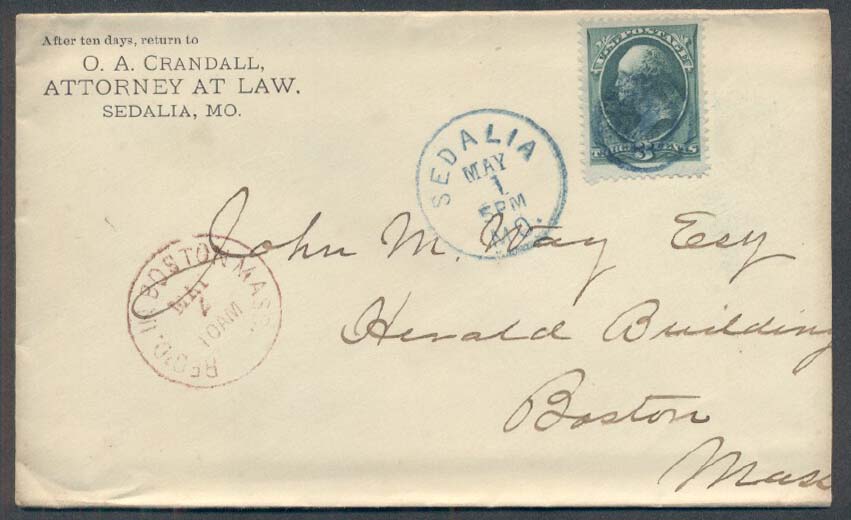 After ten days, return to
O. A. CRANDALL,
ATTORNEY AT LAW.
SEDALIA, MO.
U.S. POSTAGE
THREE 3 CENTS
SEDALIA
MAY
1
5PM
MO.
BOSTON MASS.
MAY
10AM
REC'D.
John M. Way Esq
Herald Building
Boston
Mass